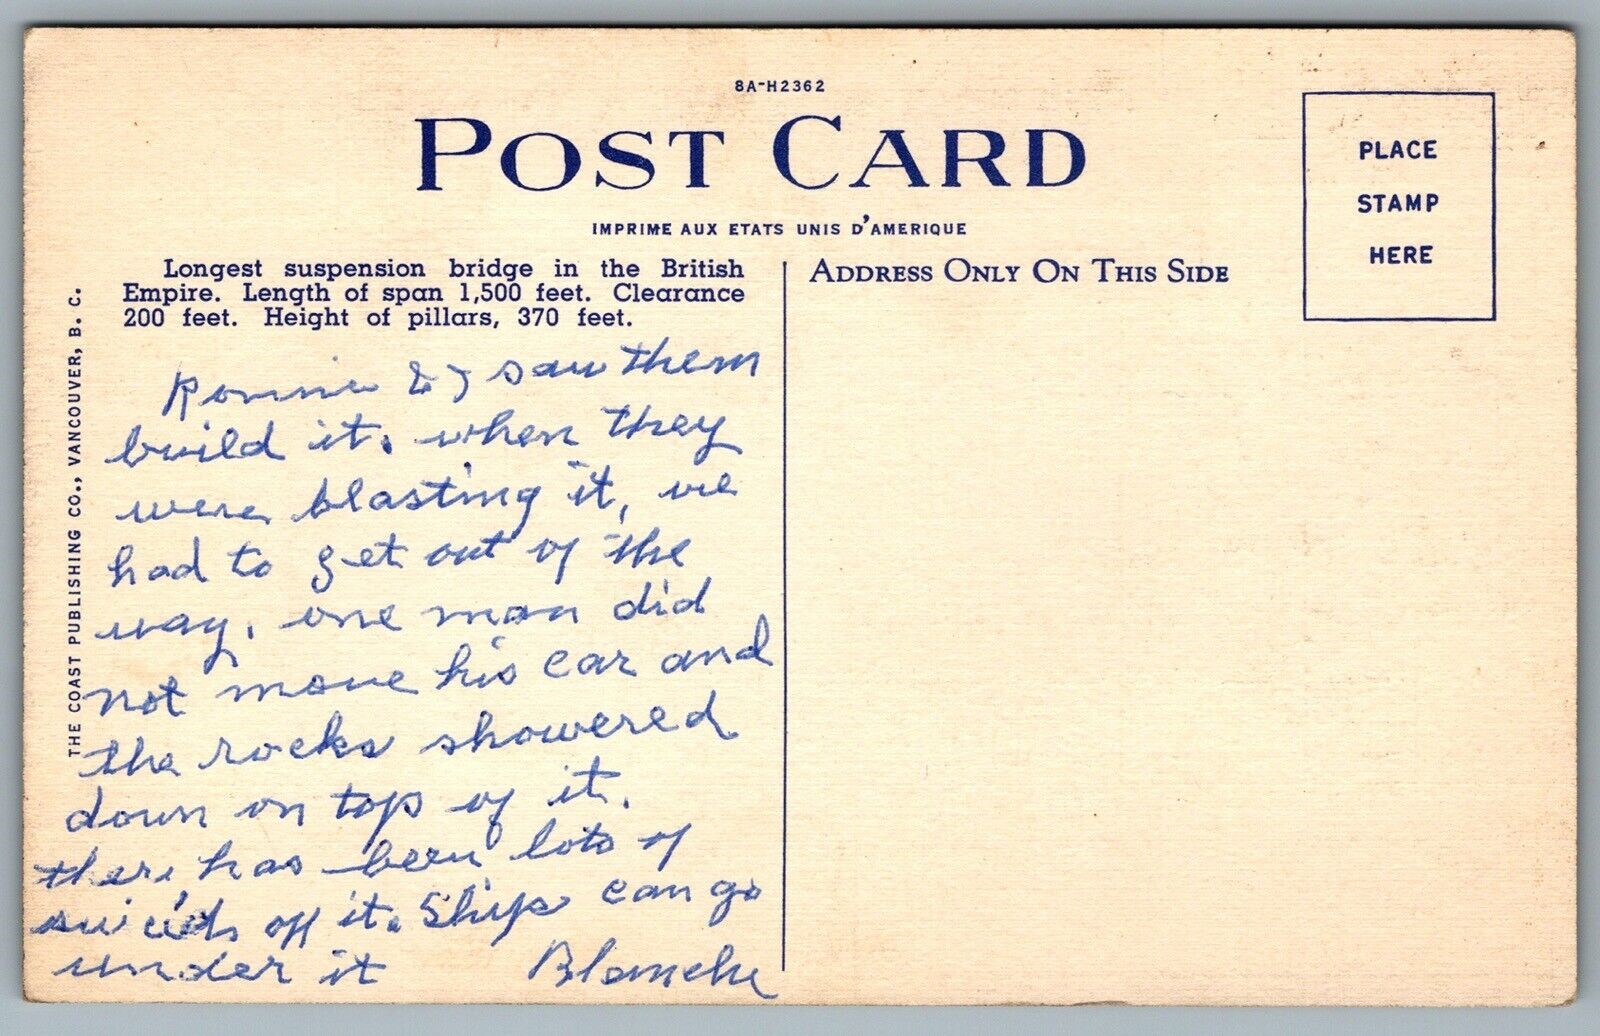 8A-H2362
POST CARD
IMPRIME AUX ETATS UNIS D'AMERIQUE
PLACE
STAMP
HERE
Longest suspension bridge in the British
Empire. Length of span 1,500 feet. Clearance
200 feet. Height of pillars, 370 feet.
ADDRESS ONLY ON THIS SIDE
THE COAST PUBLISHING CO., VANCOUVER, B. C.
Ronnie & I saw them
build it. when they
were blasting it, we
had to get out of the
way. one man did
not move his car and
the rocks showered
down on top of it.
there has been lots of
suicids off it. Ships can go
under it Blanche